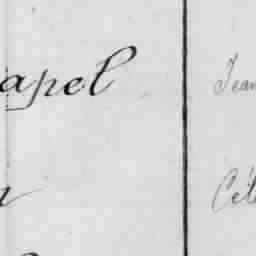 apel Jean
Cél